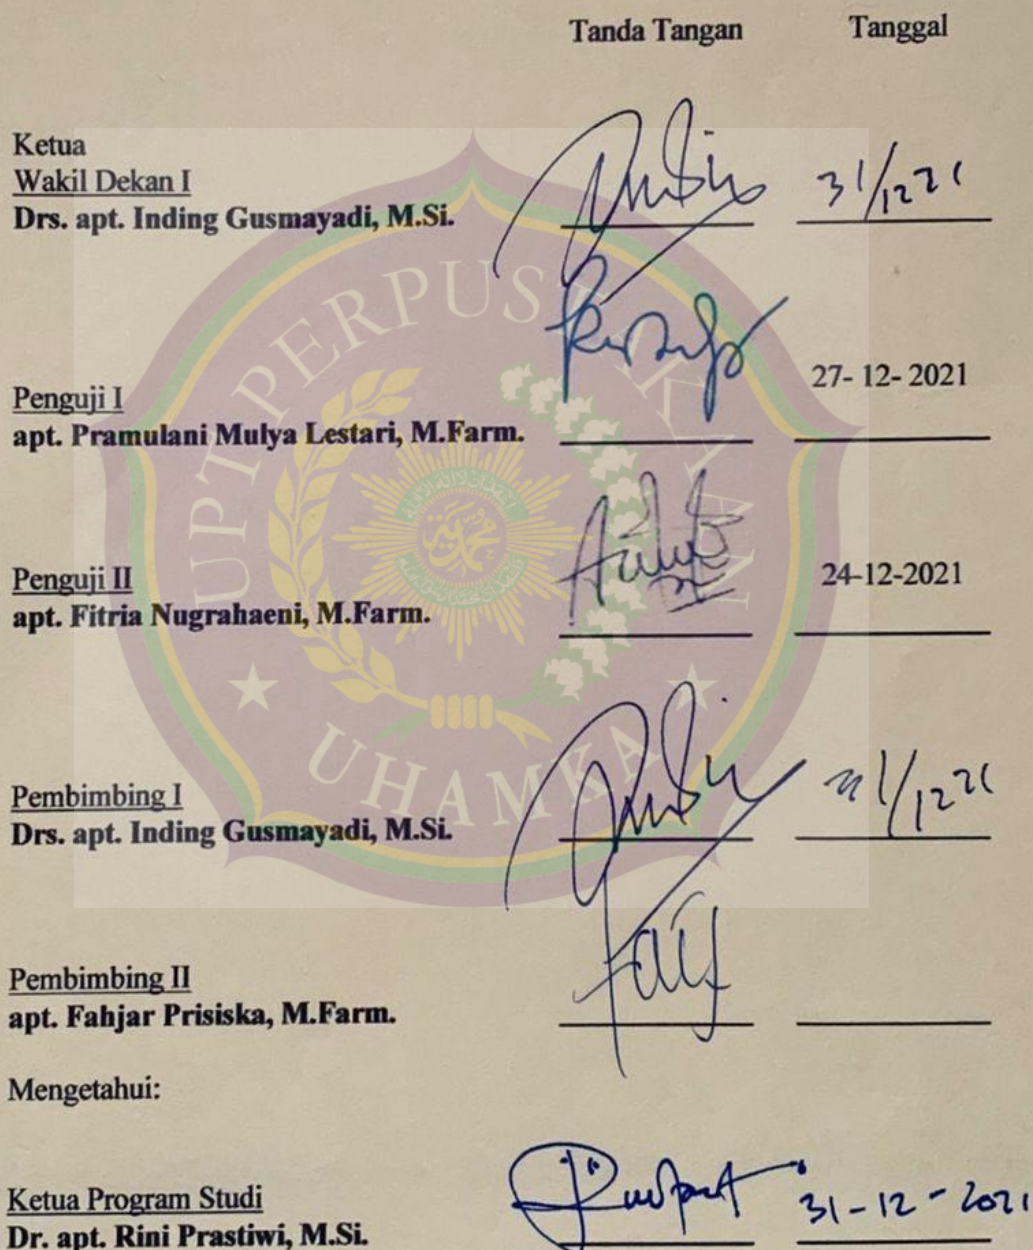 Tanda Tangan Tanggal
Ketua
Wakil Dekan I
Drs. apt. Inding Gusmayadi, M.Si. 31/12 21
Penguji I
27- 12- 2021
apt. Pramulani Mulya Lestari, M.Farm.
Penguji II 24-12-2021
apt. Fitria Nugrahaeni, M.Farm.
Pembimbing I
Drs. apt. Inding Gusmayadi, M.Si. 31/12 21
Pembimbing II
apt. Fahjar Prisiska, M.Farm.
Mengetahui:
Ketua Program Studi 31-12-2021
Dr. apt. Rini Prastiwi, M.Si.
UPT PERPUSTAKAAN
UHAMKA